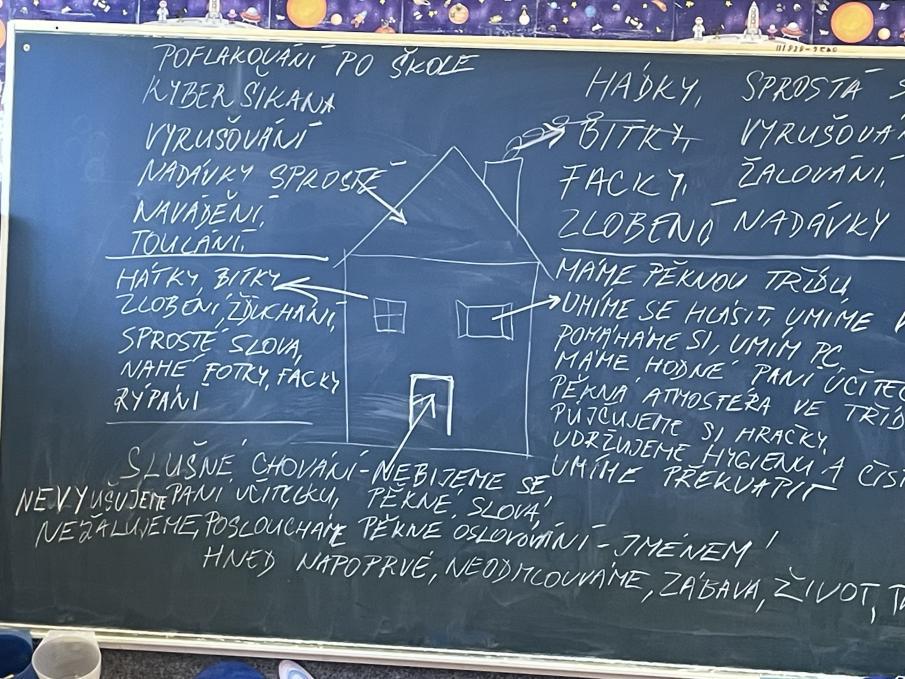 POFLAKOVÁNÍ PO ŠKOLE
KYBERŠIKANA
VYRUŠOVÁNÍ
NADÁVKY SPROSTÉ
NAVÁDĚNÍ,
TOULÁNÍ.
HÁTKY, BITKY
ZLOBENÍ, ŽĎUCHÁNÍ,
SPROSTÉ SLOVA,
NAHÉ FOTKY, FACKY
RÝPÁNÍ
HÁDKY, SPROSTÁ S
BITKY, VYRUŠOVÁ
FACKY, ŽALOVÁNÍ,
ZLOBENÍ NADÁVKY
MÁME PĚKNOU TŘÍDU,
UMÍME SE HLÁSIT, UMÍME
POMÁHÁME SI, UMÍM PC,
MÁME HODNÉ PANÍ UČITEL
PĚKNÁ ATMOSTÉRA VE TŘÍD
PŮJČUJEME SI HRAČKY,
UDRŽUJEME HYGIENU A ČIS
UMÍME PŘEKVAPIT
SLUŠNÉ CHOVÁNÍ - NEBIJEME SE
NEVYUŠUJEME PANÍ UČITELKU, PĚKNÉ SLOVA
NEŽALUJEME, POSLOUCHÁME PĚKNÉ OSLOVOVÁNÍ - JMÉNEM
HNED NAPOPRVÉ, NEODMLOUVÁME, ZÁBAVA, ŽIVOT,